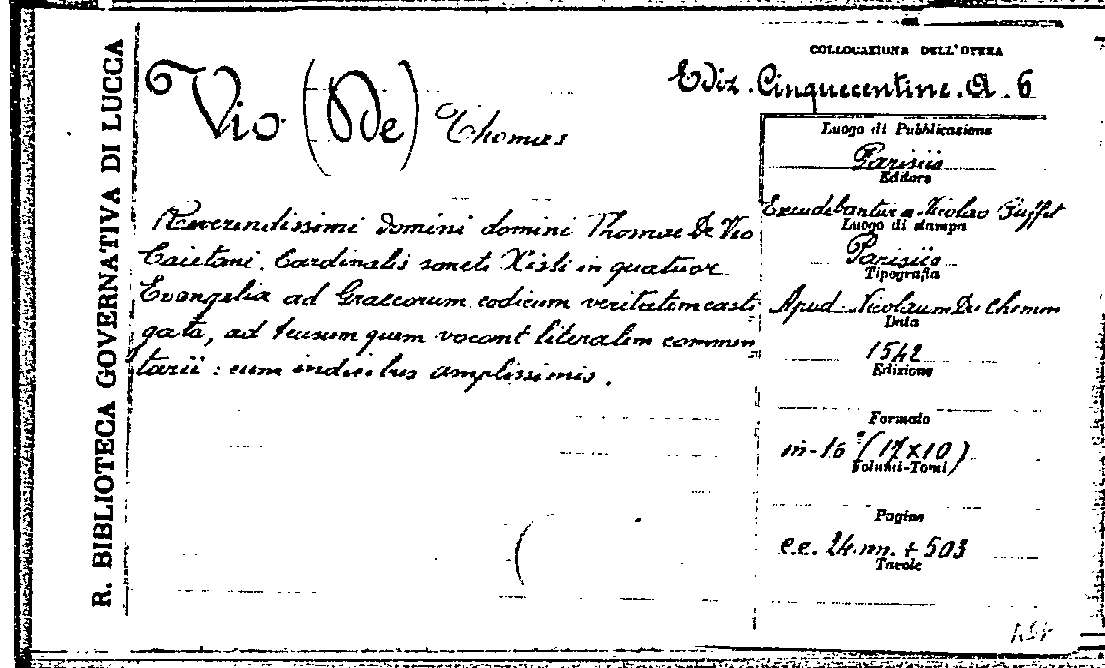 R. BIBLIOTECA GOVERNATIVA DI LUCCA
Vio (De) Thomas
Reverendissimi domini domini Thomae De Vio
Caietani. Cardinalis sancti Xisti in quatuor
Evangelia ad Graecorum codicum veritatem casti
gata, ad sensum quem vocant literalem commen
tarii: cum indicibus amplissimis.
COLLOCAZIONE DELL'OPERA
Ediz. Cinquecentine. A. 6
Luogo di Pubblicazione
Parisiis
Editore
Excudebantur a Nicolao Buffet
Luogo di stampa
Parisiis
Tipografia
Apud Nicolaum De Chemm
Data
1542
Edizione
Formato
in-16° (17x10)
Volumi-Tomi
Pagine
c.c. 24.nn. + 503
Tavole